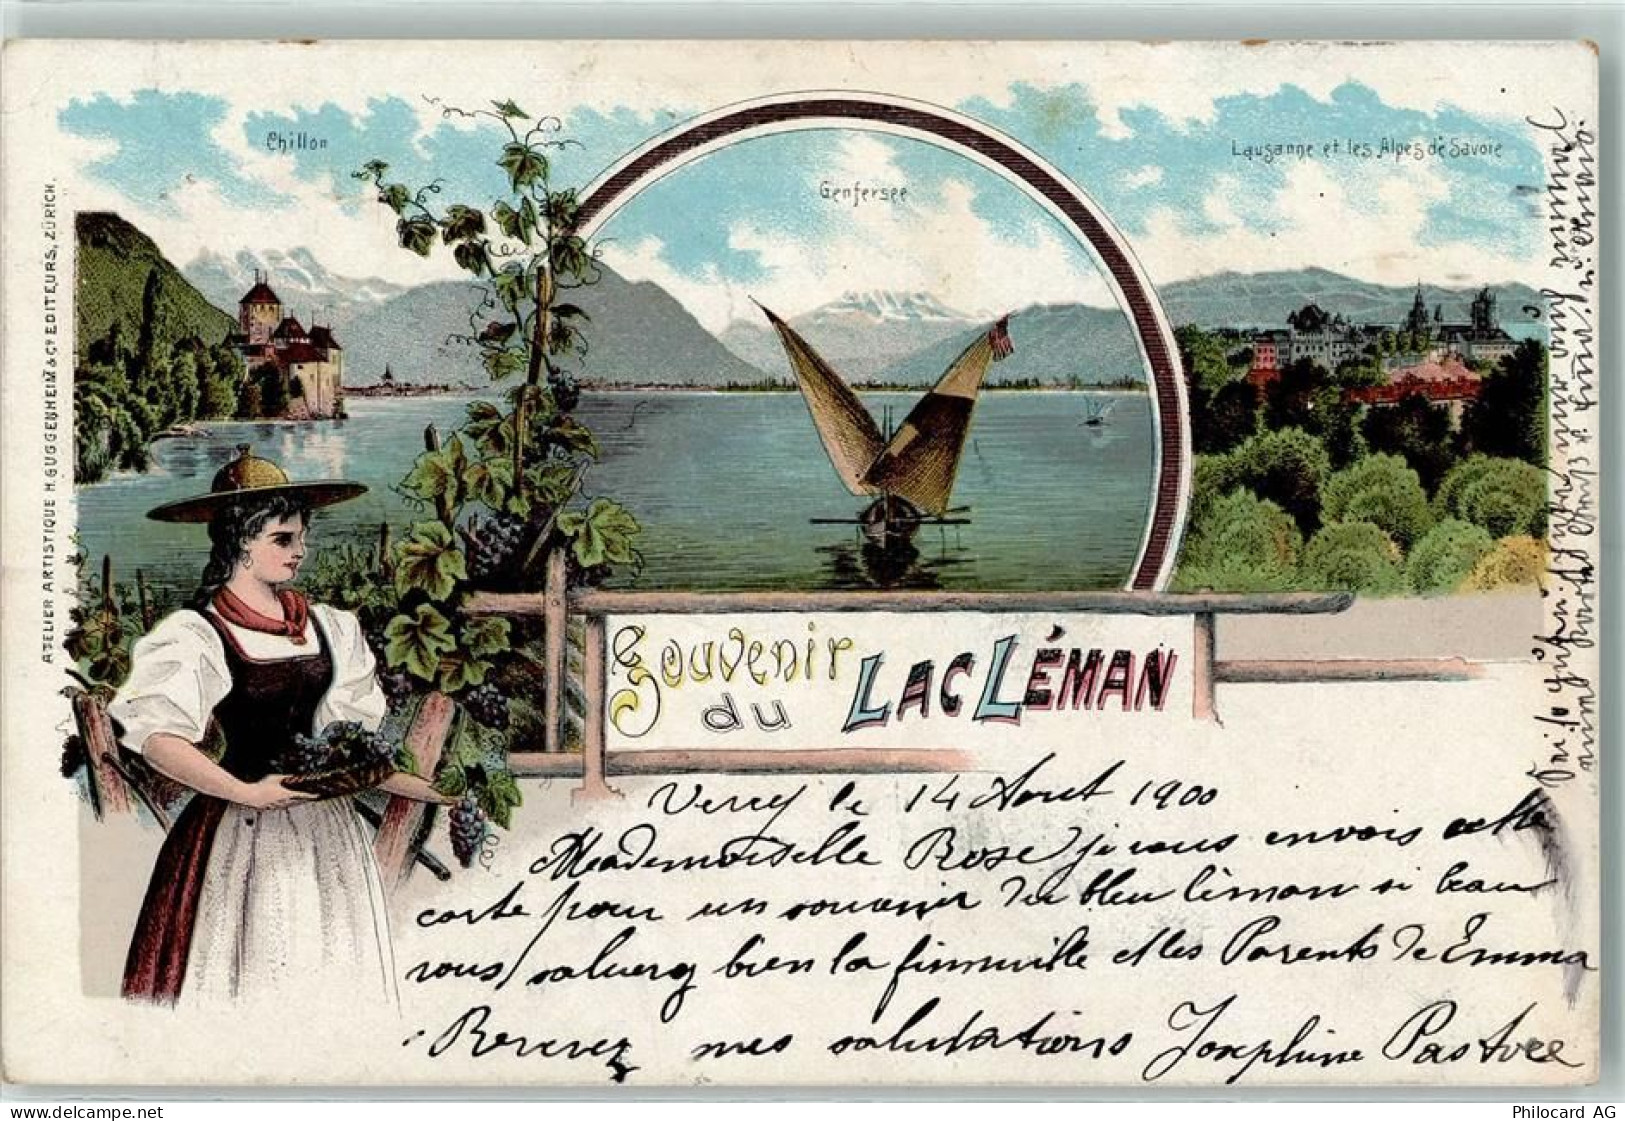 Chillon
Genfersee
Lausanne et les Alpes de Savoie
ATELIER ARTISTIQUE H. GUGGENHEIM & Co EDITEURS, ZÜRICH.
Souvenir
du LAC LÉMAN
le 14 Aout 1900
Mademoiselle Rose je vous envois cette
carte pour un souvenir du bleu lèman si beau
vous saluerez bien la et les Parents de Emma
Recevez mes salutations Josephine Pastore
Philocard AG